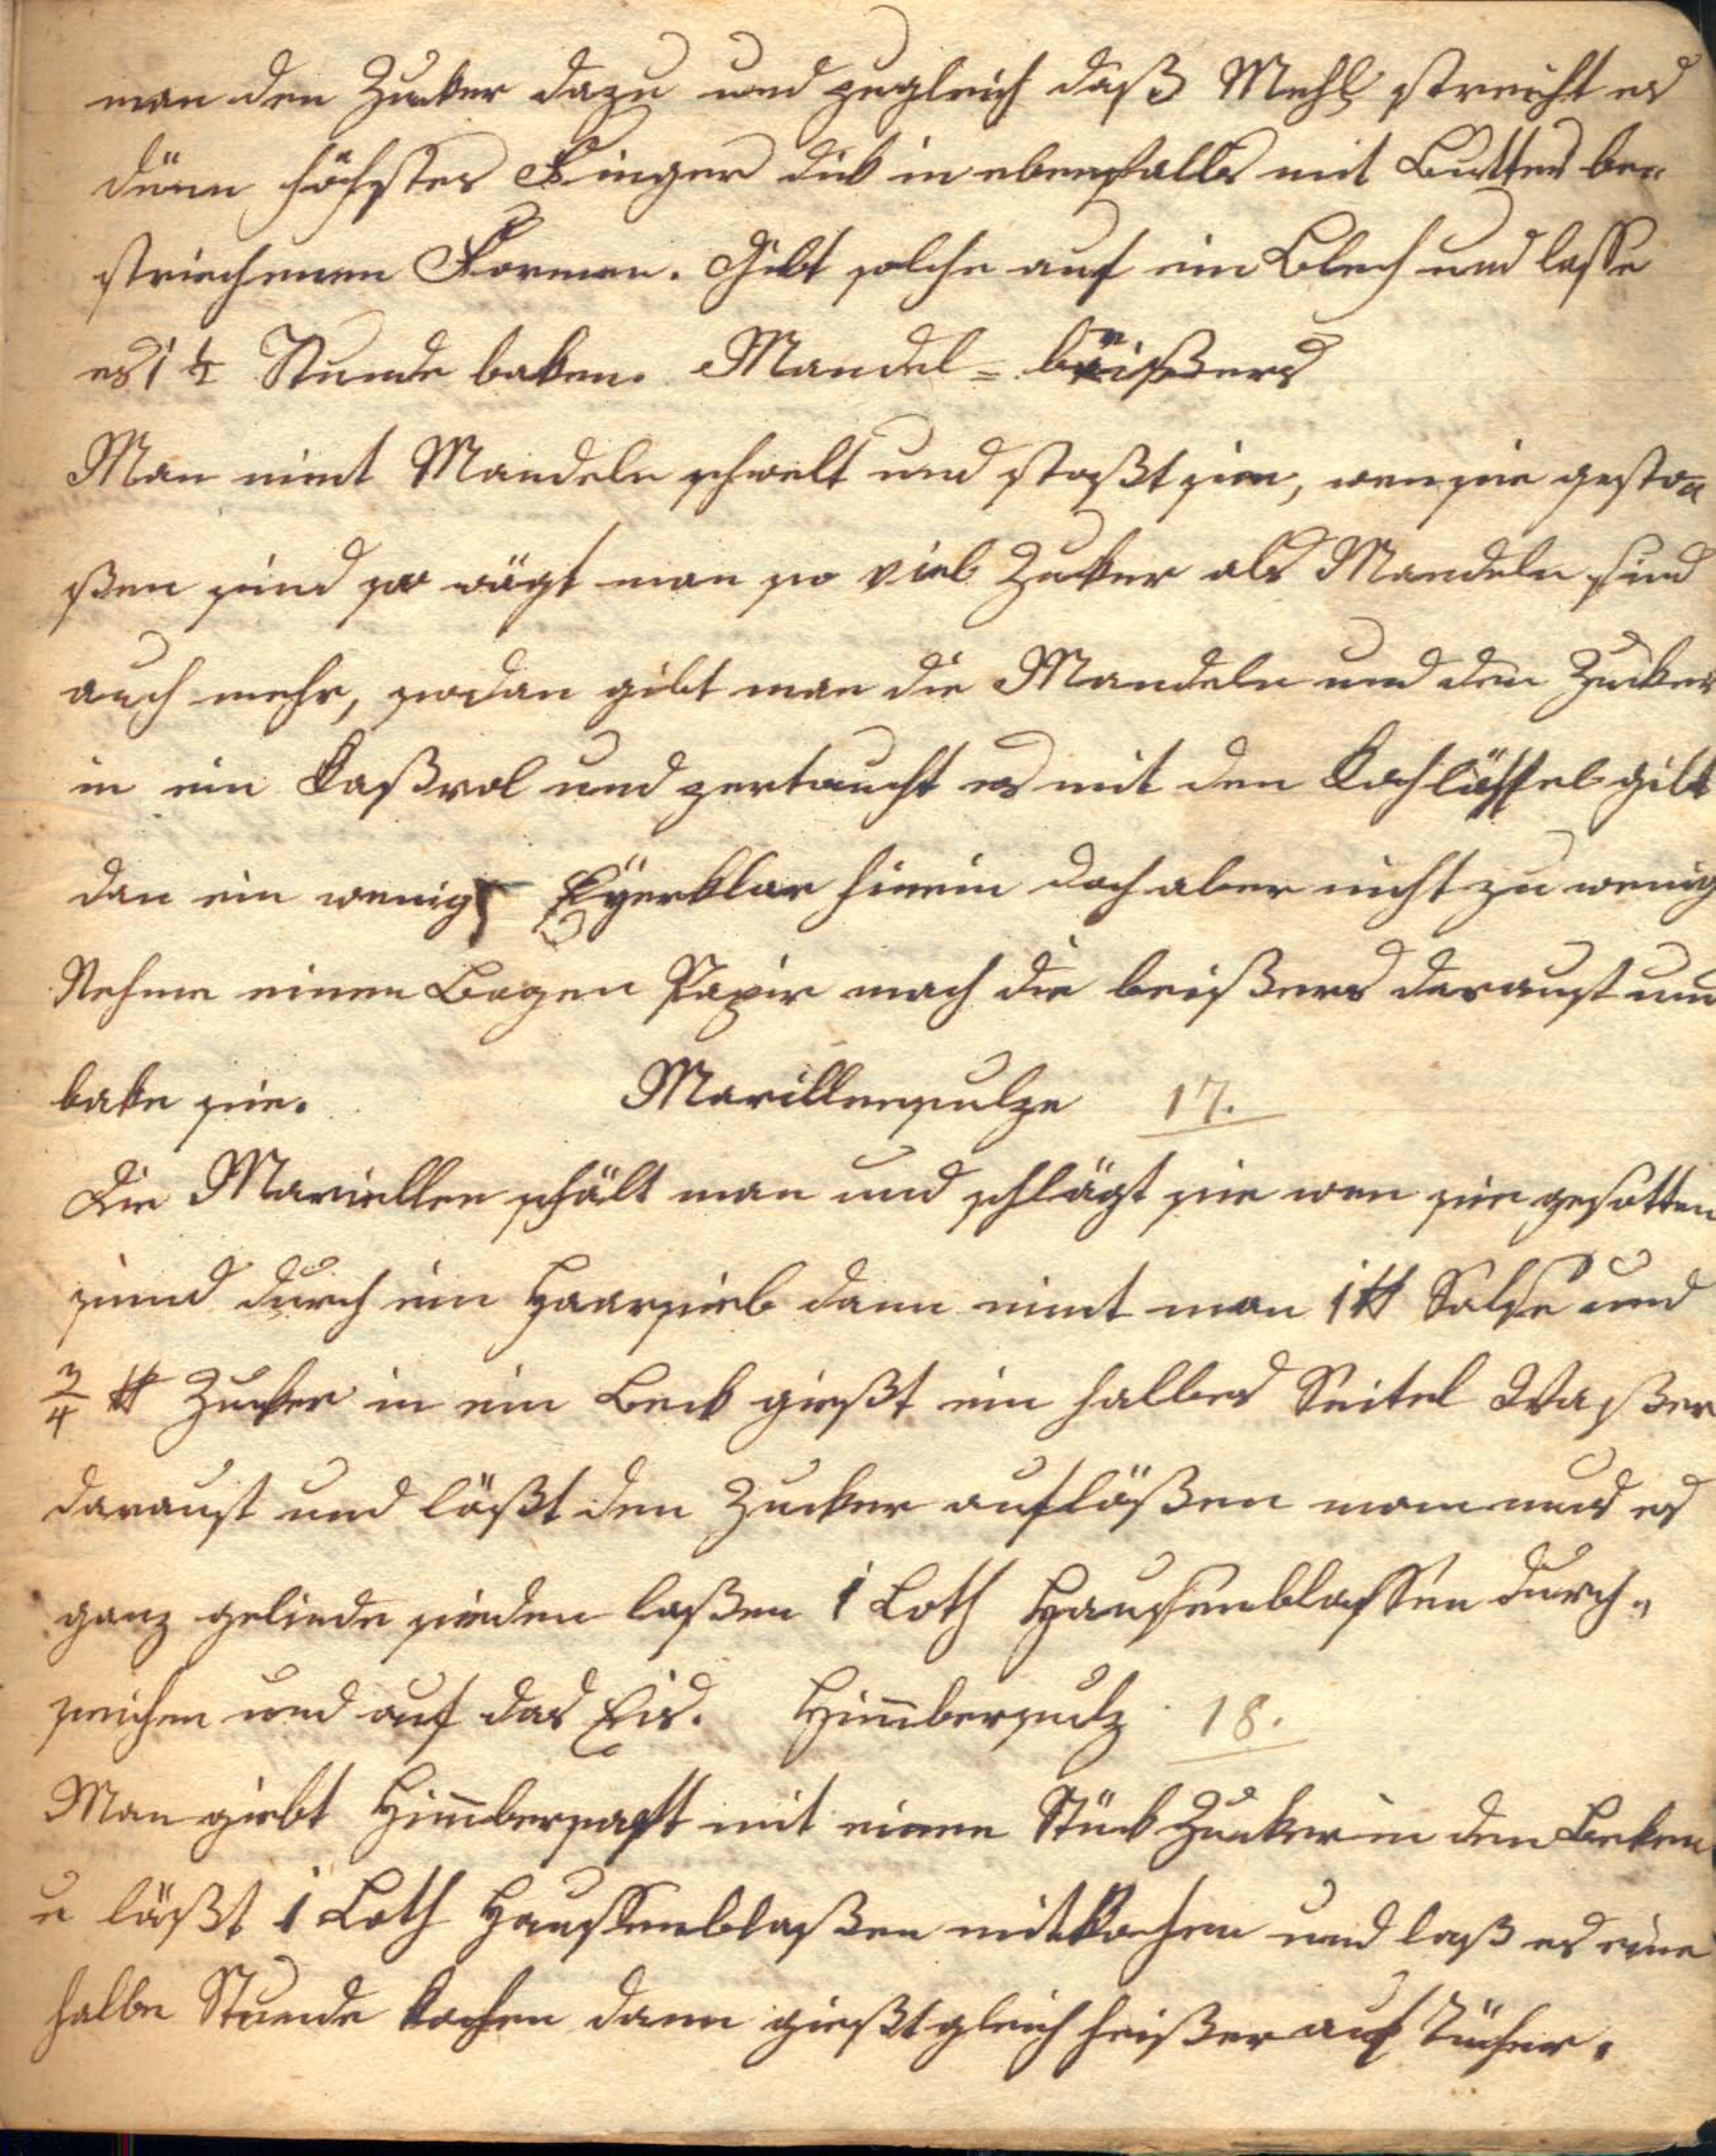 man den Zucker dazu und zugleich daß Mehl streicht es
dünn höchstes Finger dick in ebenfalls mit Butter be=
striechenen Formen. Gibt solche auf ein Blech und lasse
es 1 ½ Stunde baken. Mandel = beißers
Man nimt Mandeln schwelt und stoßt sie, wen sie gesto=
ßen sind so wägt man so viel Zuker als Mandeln sind
auch mehr, sodan gibt man die Mandeln und den Zucker
in ein Kaßrol und zertaucht es mit den Kochlöffel gibt
dan ein wenig Eÿerklar hinein doch aber nicht zu wenig
Nehme einen Bogen Papir mach die beißers darauf und
bake sie. Marillensulze 17.
Die Mariellen schält man und schlägt sie wen sie gesotten
sind durch ein Haarsieb dann nimt man 1 ℔ Salse und
3/4 ℔ Zucker in ein Beck gießt ein halbes Seitel Waßer
darauf und läßt den Zucker auflößen man muß es
ganz gelinde sieden laßen 1 Loth Haussenblassen durch=
seichen und auf das Eis. Him̄bersulz 18.
Man giebt Him̄bersaft mit einen Stück Zucker in den Beken
u läßt 1 Loth Haussenblaßen mitkochen und laß es eine
halbe Stunde kochen dann gießt gleich heißer auf Tücher.